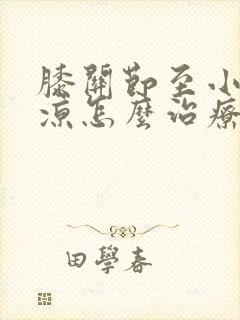 膝關節至小
涼怎麼治療
田學春